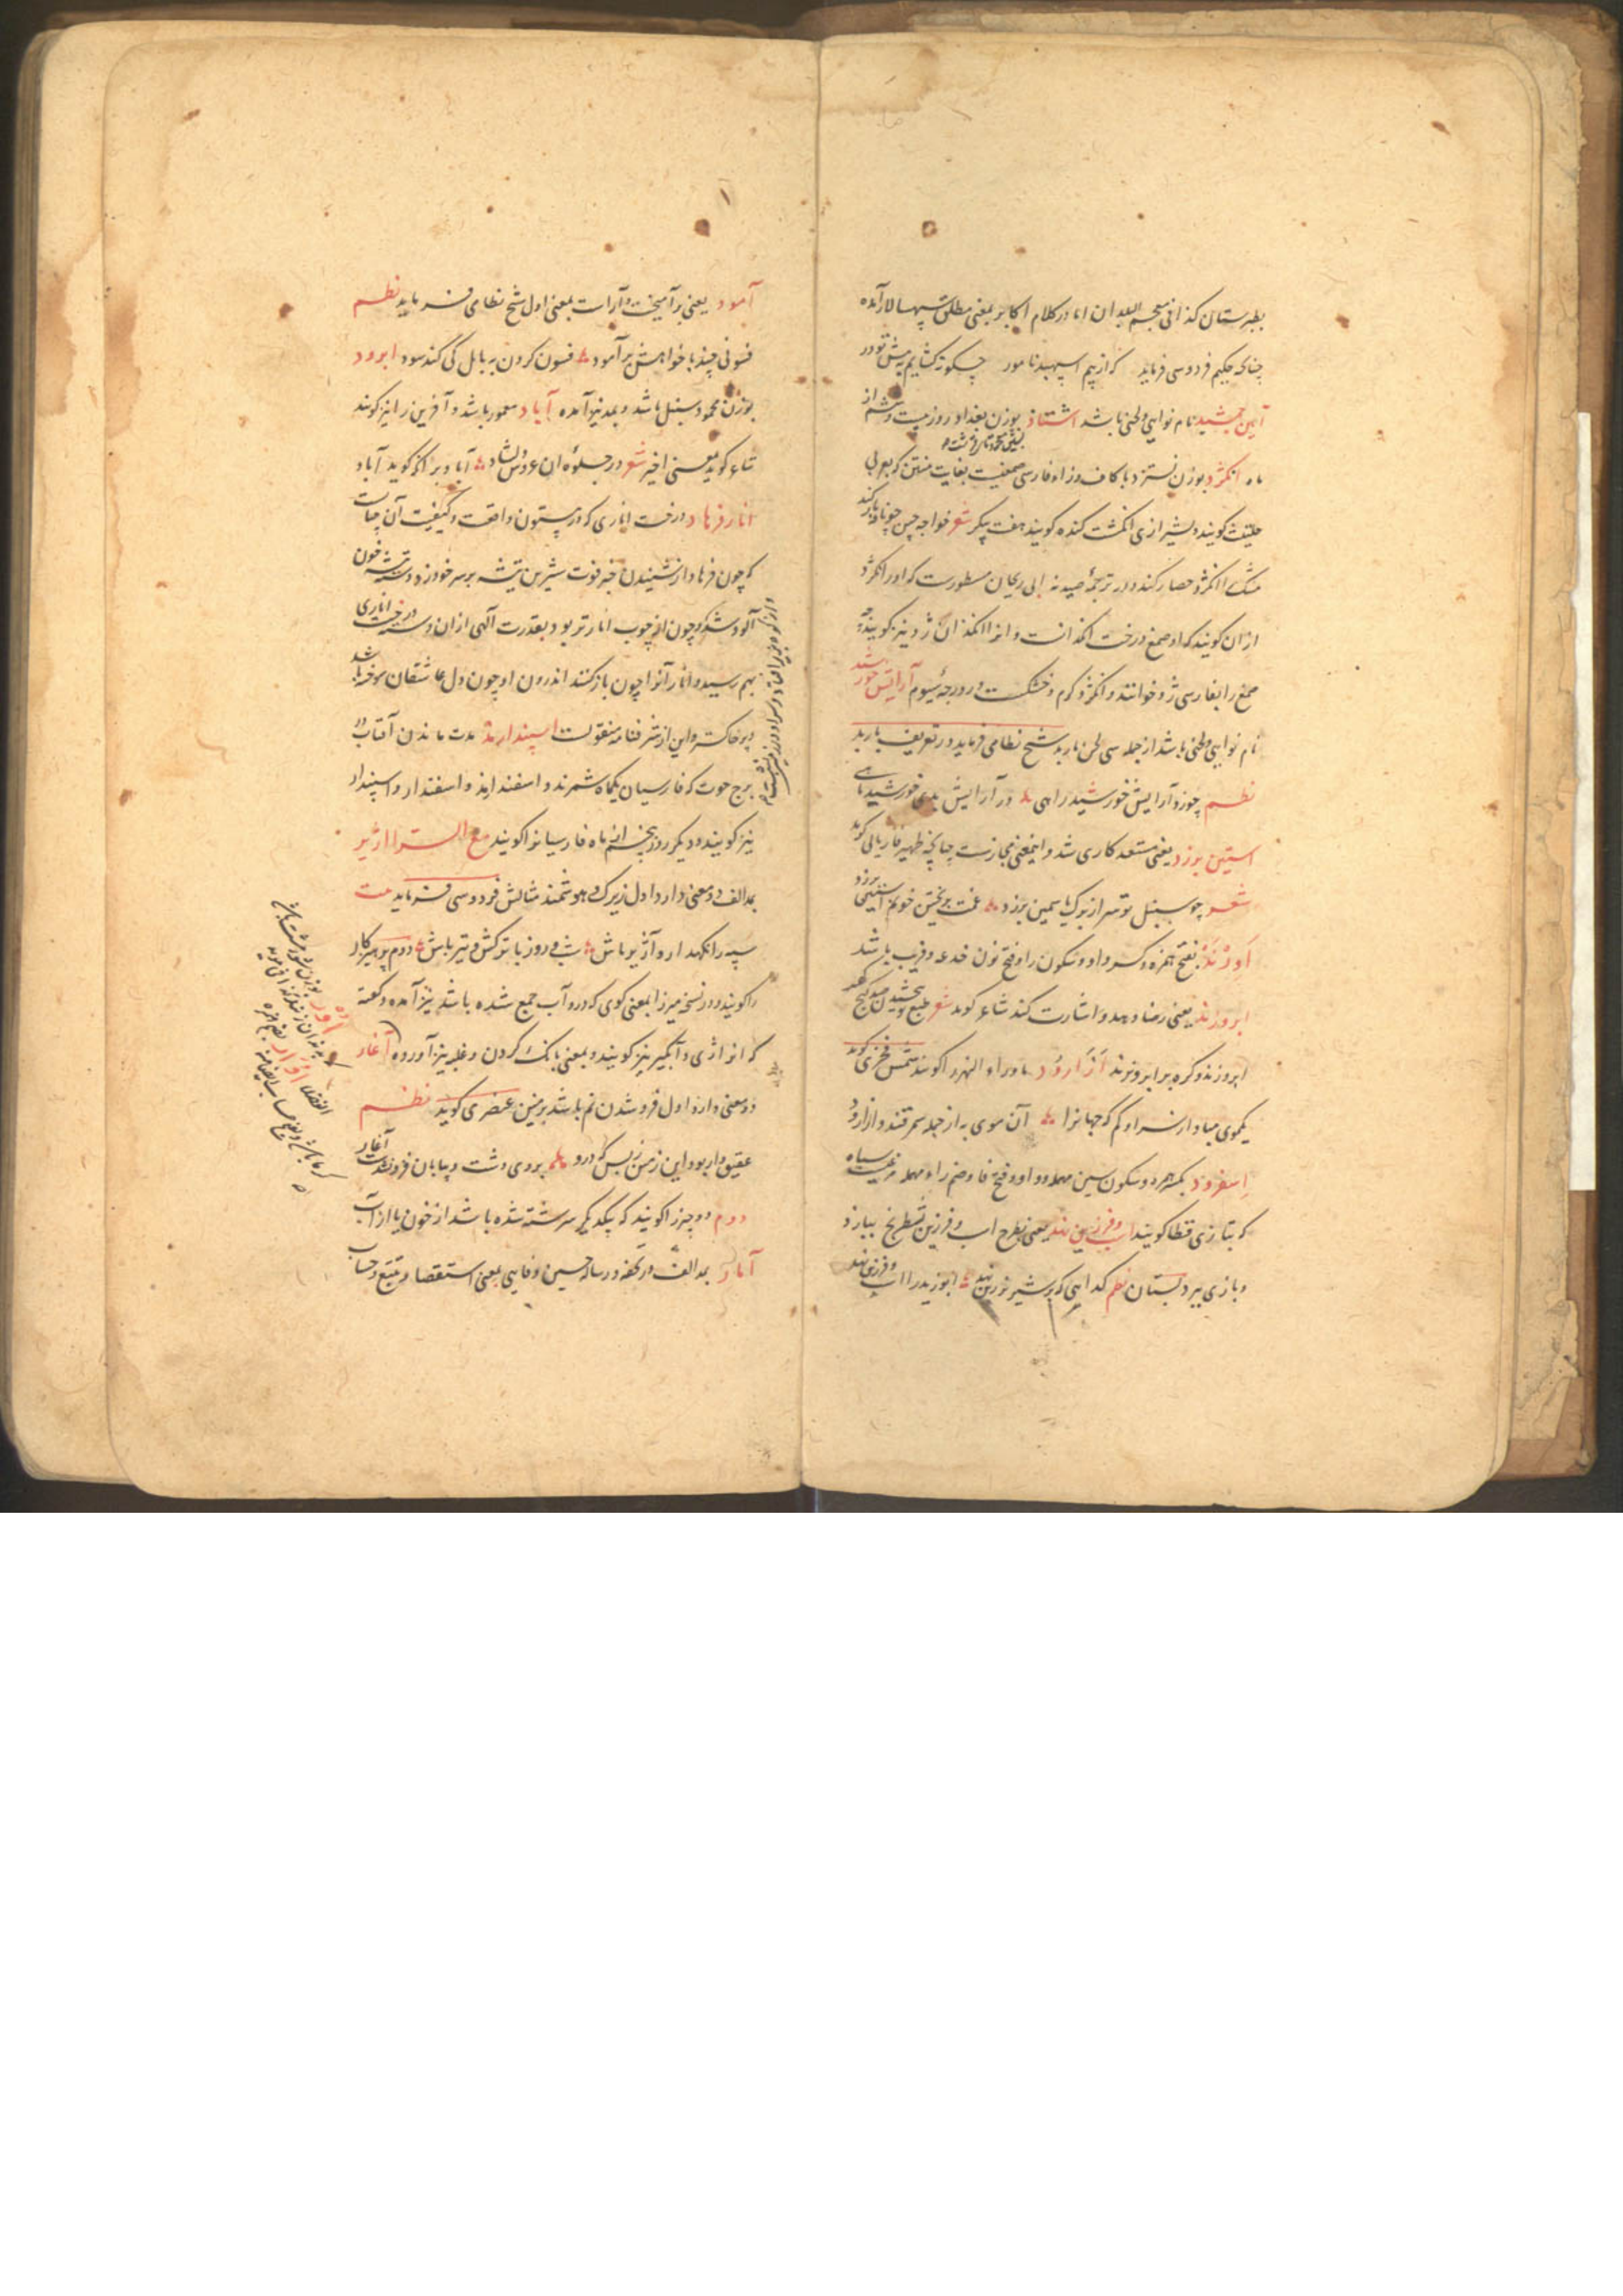 بطبرستان کذا فی معجم البلدان اما در کلام اکابر بمعنی مطلق سپهسالار آمده
چنانکه حکیم فردوسی فرماید که از بیم اسپهبد نامور چگونه کشایم به پیش تو در
آیین جمشید نام نوایی و لحنی باشد اشتاد بوزن بغداد روز بیست و ششم از
ماه انگژد بوزن نسترد با کاف و زاء فارسی صمغیست بغایت منتن که بعربی
حلتیت گویند و شیرازی انگشت گنده گویند هفت پیکر شعر خواجه چین چو نافه بار کند
مشک را انگژد حصار کند و در ترجمه صیدنه ابی ریحان مسطورست که او را انگژد
از آن گویند که او صمغ درخت انگدانست و او را انگدان ژد نیز گویند چه
صمغ را بفارسی ژد خوانند و انگژد گرم و خشکست در درجه سیوم آرایش خورشید
نام نوایی و لحنی باشد از جمله سی لحن باربد شیخ نظامی فرماید در تعریف باربد
نظم چو زد آرایش خورشید راهی در آرایش بدی خورشید ماهی
آستین برزد یعنی مستعد کاری شد و اینمعنی مجازست چنانکه ظهیر فاریابی گوید
شعر چو سنبل تو سر از برگ یاسمین برزد غمت بریختن خونم آستین برزد
اورند بفتح همزه و کسر واو و سکون را و فتح نون خدعه و فریب باشد
ابرو زند یعنی رضا دهد و اشارت کند شاعر گوید شعر
ابرو زند و گره بر ابرو نزند آزارود ماوراء النهر را گویند شمس فخری گوید
یکموی مبادا ز سر او کم که جهانرا آن موی به از جمله سمرقند و ازارود
اسفرود بکسر همزه و سکون سین مهمله و واو و فتح فا و ضم راء مهمله مرغیست سیاه
که بتازی قطا گویند اسب و فرزین نهد یعنی بطرح اسب و فرزین شطرنج ببازد
و بازی ببرد بستان نظم گدایی که بر شیر نر زین نهد ابوزید را اسب و فرزین نهد
آمود یعنی برآمیخت و آراست بمعنی اول شیخ نظامی فرماید نظم
فسونی چند با خواهش برآمود فسون کردن به بابل کی کند سود ابرود
بوزن محمود سنبل باشد و بمد نیز آمده آباد معمور باشد و آفرین را نیز گویند
شاعر گوید بمعنی اخیر شعر در جلوه آن عروس دلشاد آباد بر آنکه گوید آباد
انار فرهاد درخت اناری که در بیستون واقعست و کیفیت آن چنانست
که چون فرهاد از شنیدن خبر فوت شیرین تیشه بر سر خود زد دسته تیشه خون
آلود شد و چون از چوب انار تر بود بقدرت الهی از آن دسته درخت اناری
بهم رسید و انار آنرا چون باز کنند اندرون او چون دل عاشقان سوخته باشد
و پر خاکستر و این از شرفنامه منقولست اسپندارمذ مدت ماندن آفتاب در
برج حوت که فارسیان یکماه شمرند و اسفندارمذ و اسفندار و اسپندار
نیز گویند و دیگر روز پنجم از ماه فارسیانرا گویند مع الراء آژیر
بمد الف دو معنی دارد اول زیرک و هوشمند مثالش فردوسی فرماید بیت
سپه را نگهدار و آژیر باش شب و روز با ترکش و تیر باش دوم پرهیزکار
را گویند و در نسخه میرزا بمعنی گوی که درو آب جمع شده باشد نیز آمده و گفته
که آنرا ژی و آبگیر نیز گویند و بمعنی بانگ کردن و غلبه نیز آورده آغار
دو معنی دارد اول فرو شدن نم باشد بزمین عنصری گوید نظم
عقیق وار بود این زمین ز بس که درو بروی دشت و بیابان فرو شدست آغار
دوم دو چیز را گویند که بیکدیگر سرشته شده باشد از خون یا از آب
آمار بمد الف در تحفه و رساله حسین وفایی بمعنی استقصا و تتبع و حساب